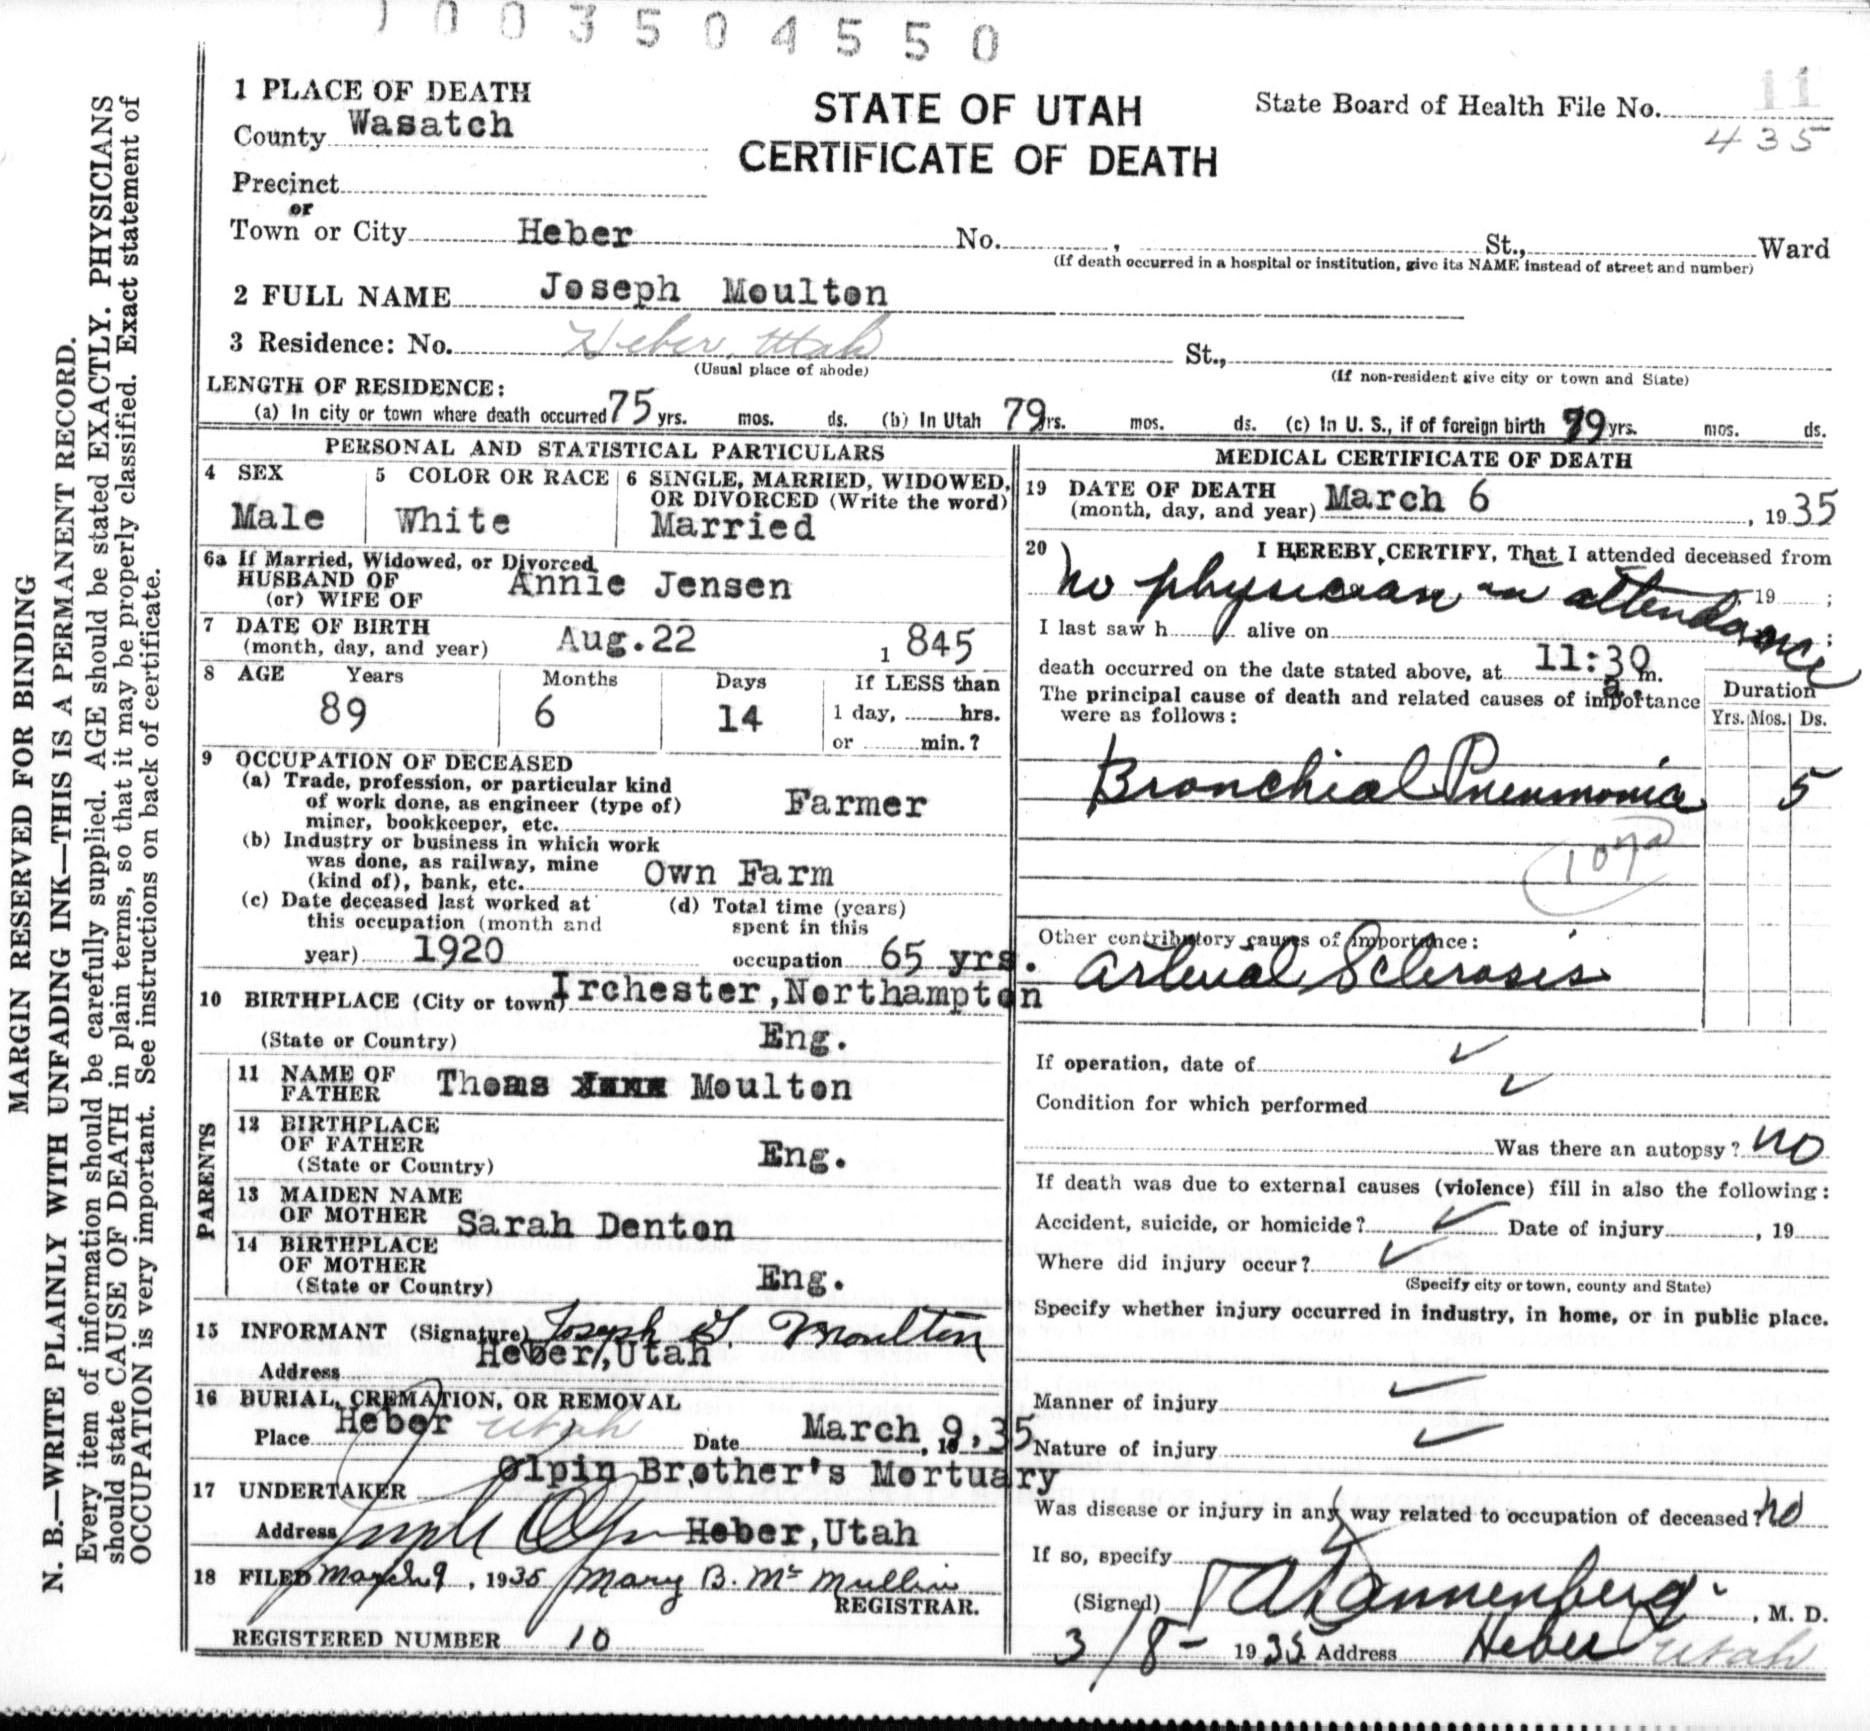 1003504550
1 PLACE OF DEATH
County Wasatch
STATE OF UTAH
CERTIFICATE OF DEATH
State Board of Health File No. 11
435
Precinct
or
Town or City Heber No. , St., Ward
(If death occurred in a hospital or institution, give its NAME instead of street and number)
2 FULL NAME Joseph Moulton
3 Residence: No. Heber, Utah St.,
(Usual place of abode) (If non-resident give city or town and State)
LENGTH OF RESIDENCE:
(a) In city or town where death occurred 75 yrs. mos. ds. (b) In Utah 79 rs. mos. ds. (c) In U. S., if of foreign birth 79 yrs. mos. ds.
PERSONAL AND STATISTICAL PARTICULARS
4 SEX
Male
5 COLOR OR RACE
White
6 SINGLE, MARRIED, WIDOWED,
OR DIVORCED (Write the word)
Married
6a If Married, Widowed, or Divorced
HUSBAND OF
(or) WIFE OF
Annie Jensen
7 DATE OF BIRTH
(month, day, and year) Aug.22 1 845
8 AGE Years Months Days If LESS than
89 6 14 1 day, hrs.
or min.?
9 OCCUPATION OF DECEASED
(a) Trade, profession, or particular kind
of work done, as engineer (type of)
miner, bookkeeper, etc. Farmer
(b) Industry or business in which work
was done, as railway, mine
(kind of), bank, etc. Own Farm
(c) Date deceased last worked at
this occupation (month and
year) 1920
(d) Total time (years)
spent in this
occupation 65 yrs.
10 BIRTHPLACE (City or town) Irchester,Northampton
(State or Country) Eng.
PARENTS
11 NAME OF
FATHER Thoms Moulton
12 BIRTHPLACE
OF FATHER
(State or Country) Eng.
13 MAIDEN NAME
OF MOTHER Sarah Denton
14 BIRTHPLACE
OF MOTHER
(State or Country) Eng.
15 INFORMANT (Signature) Joseph G. Moulton
Address Heber,Utah
16 BURIAL, CREMATION, OR REMOVAL
Place Heber Utah Date March 9, 19 35
17 UNDERTAKER Olpin Brother's Mortuary
Address Heber,Utah
18 FILED March 9, 1935 Mary B. Mc Mullin
REGISTRAR.
REGISTERED NUMBER 10
MEDICAL CERTIFICATE OF DEATH
19 DATE OF DEATH
(month, day, and year) March 6, 1935
20 I HEREBY CERTIFY, That I attended deceased from
No physician in attendance, 19 ;
I last saw h alive on ;
death occurred on the date stated above, at 11:30 a. m.
The principal cause of death and related causes of importance
were as follows:
Duration
Yrs. Mos. Ds.
Bronchial Pneumonia 5
107a
Other contributory causes of importance:
Arterial Sclerosis
If operation, date of
Condition for which performed
Was there an autopsy? no
If death was due to external causes (violence) fill in also the following:
Accident, suicide, or homicide? Date of injury , 19
Where did injury occur?
(Specify city or town, county and State)
Specify whether injury occurred in industry, in home, or in public place.
Manner of injury
Nature of injury
Was disease or injury in any way related to occupation of deceased? no
If so, specify
(Signed) Dannenberg, M. D.
3/8- 1935 Address Heber Utah
MARGIN RESERVED FOR BINDING
N. B.—WRITE PLAINLY WITH UNFADING INK—THIS IS A PERMANENT RECORD.
Every item of information should be carefully supplied. AGE should be stated EXACTLY. PHYSICIANS
should state CAUSE OF DEATH in plain terms, so that it may be properly classified. Exact statement of
OCCUPATION is very important. See instructions on back of certificate.